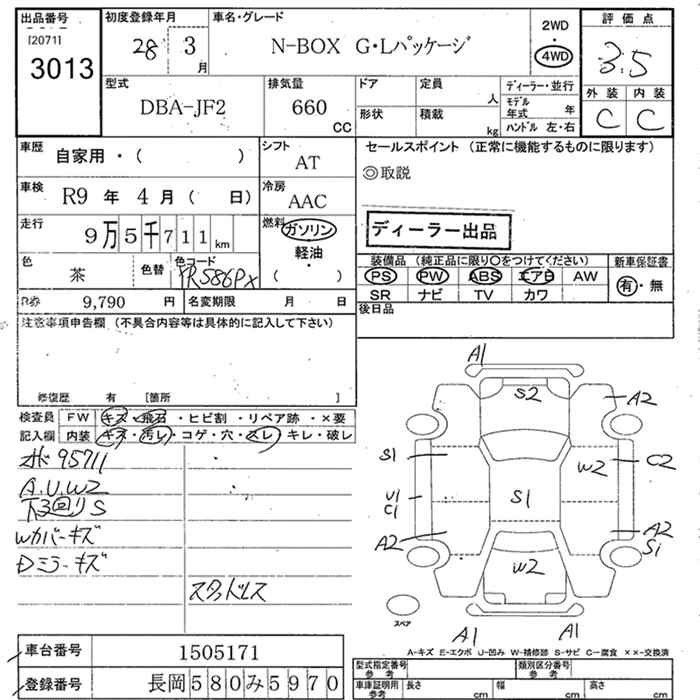 出品番号 初度登録年月 車名・グレード 2WD 評価点
[2071] 28 3 月 N-BOX G・Lパッケージ 4WD 3.5
3013
型式 排気量 ドア 定員 人 ディーラー・並行 外装 内装
DBA-JF2 660 CC 形状 積載 kg モデル年式 年 C C
ハンドル 左・右
車歴 自家用・( ) シフト AT セールスポイント (正常に機能するものに限ります)
◎取説
車検 R9 年 4 月 ( 日) 冷房 AAC
走行 9万5千711 km 燃料 ガソリン ディーラー出品
軽油・
( )
色 茶 色替 色コード YR586PX 装備品 (純正品に限り○をつけてください) 新車保証書
PS PW ABS エアB AW 有・無
R券 9,790 円 名変期限 月 日 SR ナビ TV カワ
注意事項申告欄 (不具合内容等は具体的に記入して下さい) 後日品
修復歴 有 [箇所 ]
検査員 FW キズ・飛石・ヒビ割・リペア跡・×要
記入欄 内装 キズ・汚レ・コゲ・穴・スレ・キレ・破レ
オド95711
A.U.W2
下廻りS
Wカバーキズ
Dミラーキズ
スタッドレス
A1
S2 A2
S1 W2 C2
U1 S1
C1
A2 A2
W2 S1
スペア
A1 A1
A-キズ E-エクボ U-凹み W-補修跡 S-サビ C-腐食 ××-交換済
車台番号 1505171 型式指定番号 参考 類別区分番号 参考
登録番号 長岡580み5970 車庫証明用 参考 長さ cm 幅 cm 高さ cm